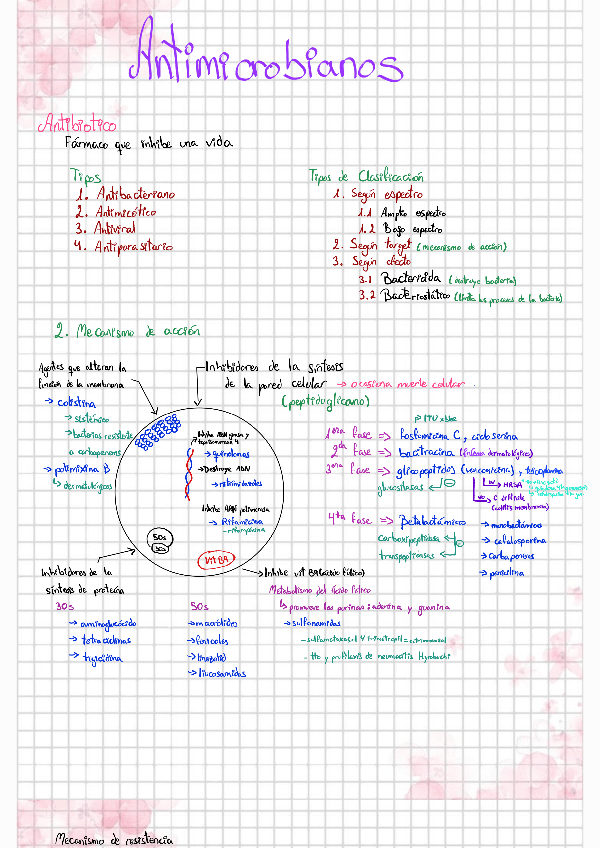 Antimicrobianos
Antibiotico
Fármaco que inhibe una vida
Tipos
1. Antibacteriano
2. Antimicótico
3. Antiviral
4. Antiparasitario
Tipos de Clasificación
1. Según espectro
1.1 Amplio espectro
1.2 Bajo espectro
2. Según target (mecanismo de acción)
3. Según efecto
3.1 Bactericida (destruye bacteria)
3.2 Bacteriostático (limita los procesos de la bacteria)
2. Mecanismo de acción
Agentes que alteran la
función de la membrana
→ colistina
→ sistémico
→ bacterias resistente
a carbapenems
→ polimixina B
↳ dermatológicos
Inhibidores de la síntesis
de la pared celular → ocasiona muerte celular
(peptidoglicano)
Inhibe ADN girasa y
topoisomerasa IV
→ quinolonas
→ Destruye ADN
→ nitroimidazoles
Inhibe ARN polimerasa
→ Rifamicina
- rifampicina
50s
30s
Vit B9
→ ITU x bloc
1era fase => fosfomicina C, cicloserina
2da fase => bacitracina (infección dermatológica)
3era fase => glicopeptidos (vancomicina), teicoplanina
glucosilasas
IV → MRSA
VO → C. difficile
(colitis membranosa)
4rta fase => Betalactámico
carboxipeptidasa
transpeptidasas
→ monobactámicos
→ cefalosporina
→ carbapenems
→ penicilina
Inhibidores de la
síntesis de proteína
30s
→ aminoglucósido
→ tetraciclinas
→ tigeciclina
50s
→ macrólidos
→ fenicoles
→ linezolid
→ lincosamidas
→ Inhibe vit B9 (ácido fólico)
Metabolismo del ácido fólico
↳ promueve las purinas: adenina y guanina
→ sulfonamidas
- sulfametoxazol y trimetropil = cotrimoxazol
- tto y profilaxis de neumocitis Hyrobachi
Mecanismo de resistencia